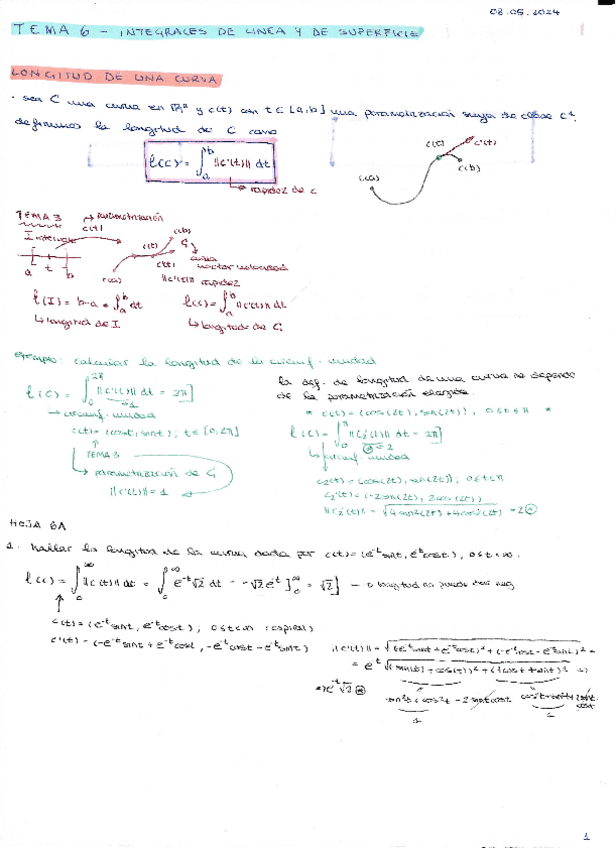 08.05.2024
TEMA 6 - INTEGRALES DE LINEA Y DE SUPERFICIE
LONGITUD DE UNA CURVA
· sea C una curva en R² y c(t) con t ∈ [a,b] una parametrización suya de clase C¹,
definimos la longitud de C como
ℓ(C) = ∫ₐᵇ ||c'(t)|| dt
→ rapidez de c
c(a)
c(t)
c'(t)
c(b)
TEMA 3
→ parametrización
c(t)
Intervalo
a t b
c(a)
c(t)
c(b)
curva
vector velocidad
||c'(t)|| rapidez
ℓ(I) = b-a = ∫ₐᵇ dt
ℓ(C) = ∫ₐᵇ ||c'(t)|| dt
↳ longitud de I
↳ longitud de C
ejemplo: calcular la longitud de la circunf. unidad
ℓ(C) = ∫₀^2π ||c'(t)|| dt = 2π]
1
→ circunf. unidad
c(t) = (cost, sint), t ∈ [0, 2π]
TEMA 3
↳ parametrización de C
||c'(t)|| = 1
la def. de longitud de una curva no depende
de la parametrización elegida.
* c(t) = (cos(2t), sin(2t)), 0≤t≤π *
ℓ(C) = ∫₀^π ||c₂'(t)|| dt = 2π]
= 2
↳ circunf. unidad
c₂(t) = (cos(2t), sin(2t)); 0≤t≤π
c₂'(t) = (-2sin(2t), 2cos(2t))
||c₂'(t)|| = √(4sin²(2t) + 4cos²(2t)) = 2
HOJA 6A
1. Hallar la longitud de la curva dada por c(t) = (e^-t sint, e^-t cost), 0≤t<∞.
ℓ(C) = ∫₀^∞ ||c'(t)|| dt = ∫₀^∞ e^-t √2 dt = -√2 e^-t ]₀^∞ = √2] → longitud no puede dar neg
c(t) = (e^-t sint, e^-t cost); 0≤t<∞ (espiral)
c'(t) = (-e^-t sint + e^-t cost, -e^-t cost - e^-t sint)
1